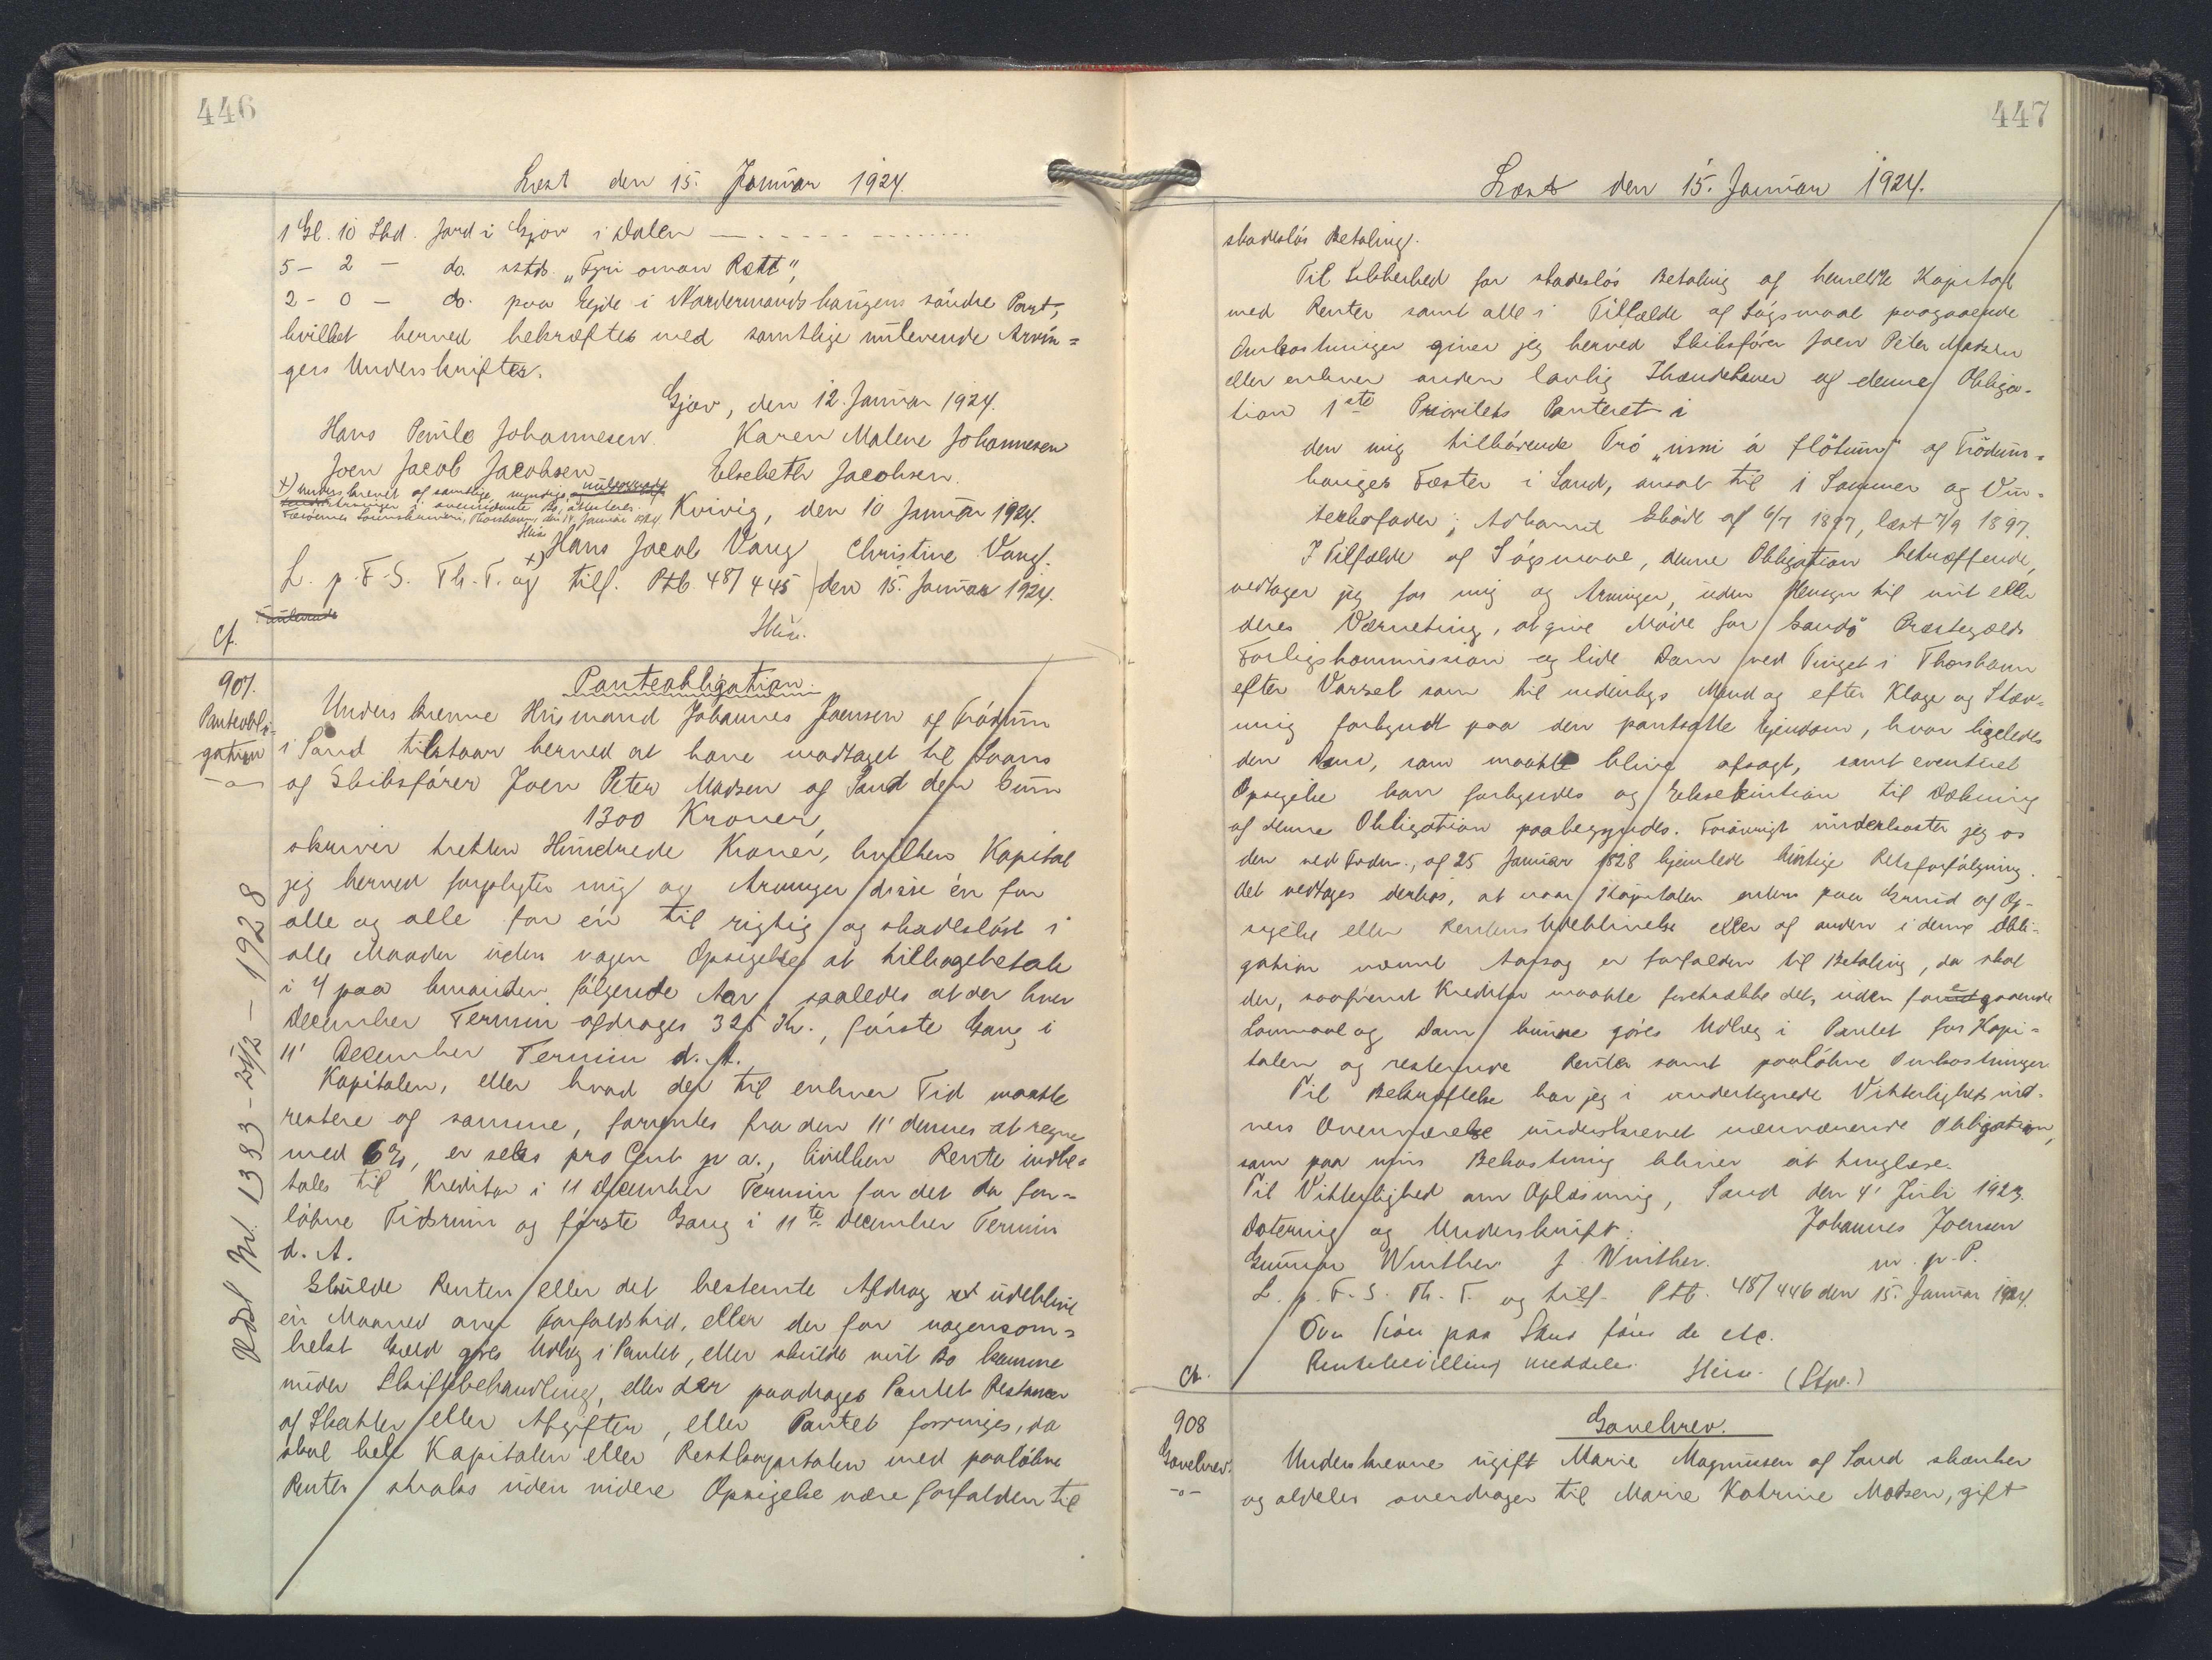 446
Læst den 15. Januar 1924.
1 Gl. 10 Skd. Jord i Gjov i Dalen
5 - 2 - do. sstds. "Fyri oman Rætt",
2 - 0 - do. paa Ejde i Nordermandshaugens söndre Part,
hvilket herved bekræftes med samtlige nulevende Arvin=
gers Underskrifter.
Gjov, den 12. Januar 1924.
Hans Paule Johannesen. Karen Malene Johannesen
Joen Jacob Jacobsen Elsebeth Jacobsen.
+) Underskrevet af samtlige myndige
i ovennævnte Bo, attesteres.
Færöernes Sorenskriveri, Thorshavn, den 14 Januar 1924.
Kvivig, den 10 Januar 1924.
+) Hans Jacob Vang Christine Vang.
L. p. F. S. Th. T. og tilf. Ptb. 48/445 den 15. Januar 1924.
Cf.
907.
Panteobli=
gation
Panteobligation.
Underskrevne Husmand Johannes Joensen af Tródum
i Sand tilstaar herved at have modtaget til Laans
af Skibsförer Joen Peter Madsen af Sand den Sum
1300 Kroner,
skriver tretten Hundrede Kroner, hvilken Kapital
jeg herved forpligter mig og Arvinger disse én for
alle og alle for én til rigtig og skadeslöst i
alle Maader uden nogen Opsigelse at tilbagebetale
i 4 paa hinanden fölgende Aar, saaledes at der hver
December Termin afdrages 325 Kr., förste Gang i
11' December Termin d. A.
Kapitalen, eller hvad der til enhver Tid maatte
restere af samme, forrentes fra den 11' dennes at regne
med 6%, er seks pro Cent p. a., hvilken Rente indbe=
tales til Kreditor i 11 December Termin for det da for=
löbne Tidsrum og förste Gang i 11te December Termin
d. A.
Skulde Renten eller det bestemte Afdrag udeblive
én Maaned over Forfaldstid, eller der for nogensom=
helst Gæld göres Udlæg i Pantet, eller skulde mit Bo komme
under Skiftebehandling, eller der paadrages Pantet Restancer
af Skatter eller Afgifter, eller Pantet forringes, da
skal hele Kapitalen eller Restkapitalen med paalöbne
Renter straks uden videre Opsigelse være forfalden til
447
Læst den 15. Januar 1924.
skadeslös Betaling.
Til Sikkerhed for skadeslös Betaling af henvldte Kapital
med Renter samt alle i Tilfælde af Sögsmaal paagaaende
Omkostninger giver jeg herved Skibsförer Joen Peter Madsen
eller enhver anden lovlig Ihændehaver af denne Obliga-
tion 1ste Prioritets Panteret i
den mig tilhörende Tró "inni á flötum" af Tródum=
hauges Fæster i Sand, ansat til 1 Sommer og Vin=
terkofoder; Adkomst Sköde af 6/7 1897, læst 7/9 1897.
I Tilfælde af Sögsmaal, denne Obligation betræffende,
vedtager jeg for mig og Arvinger, uden Hensyn til mit eller
deres Værneting, at give Möde for Sandö Præstegælds
Forligskommission og lide Dom ved Tinget i Thorshavn
efter Varsel som til indenbygs Mand og efter Klage og Stæv=
ning forkyndt paa den pantsatte Ejendom, hvor ligeledes
den Dom, som maatte blive afsagt, samt eventuel
Opsigelse kan forkyndes og Eksekution til Dækning
af denne Obligation paabegyndes. Forövrigt underkaster jeg os
den ved Frdn. af 25 Januar 1828 hjemlede hurtige Retsforfölgning.
Det vedtages derhos, at naar Kapitalen enten paa Grund af Op-
sigelse eller Rentens Udeblivelse eller af anden i denne Obli-
gation nævnt Aarsag er forfalden til Betaling, da skal
der, saafremt Kreditor maatte foretrække det, uden foregaaende
Lovmaal og Dom kunne göres Udlæg i Pantet for Kapi=
talen og resterende Renter samt paalöbne Omkostninger
Til Bekræftelse har jeg i undertegnede Vitterlighedsvid-
ners Overværelse underskrevet nærværende Obligation,
som paa min Bekostning bliver at tinglæse.
Til Vitterlighed om Oplæsning, Sand den 4' Juli 1923.
Datering og Underskrift: Johannes Joensen
Gunnar Winther J. Winther. m. p. P.
L. p. F. S. Th. T. og tilf. Ptb. 48/446 den 15. Januar 1924.
Cf.
908
Gavebrev.
Gavebrev.
Underskrevne ugift Marie Magnussen af Sand skænker
og aldeles overdrager til Marie Katrine Madsen, gift